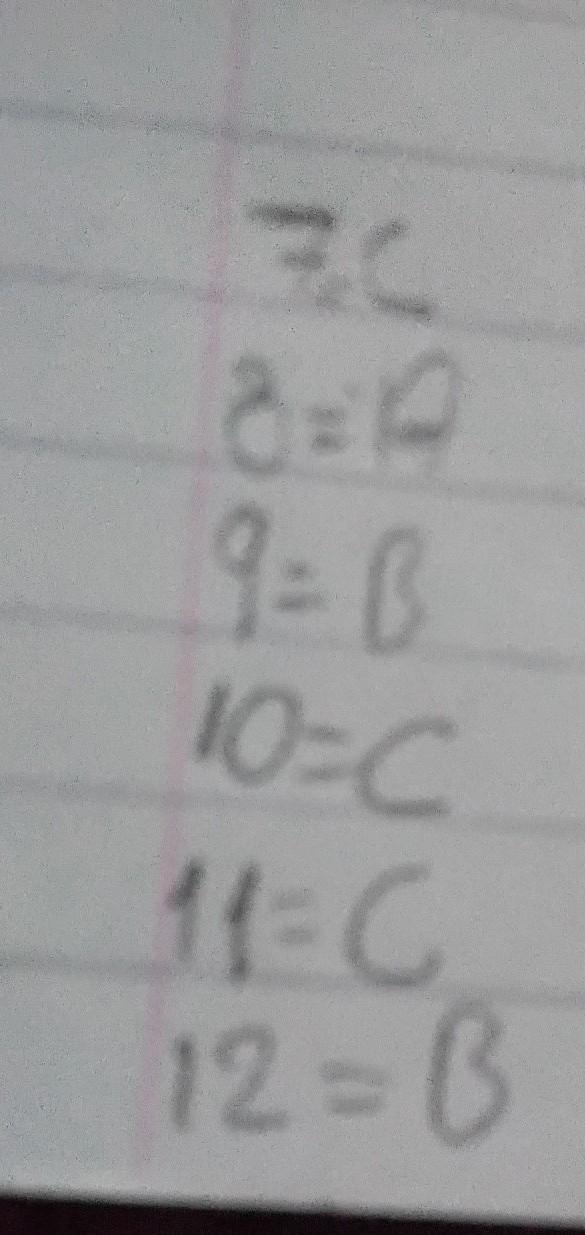 7=C
8=A
9=B
10=C
11=C
12=B